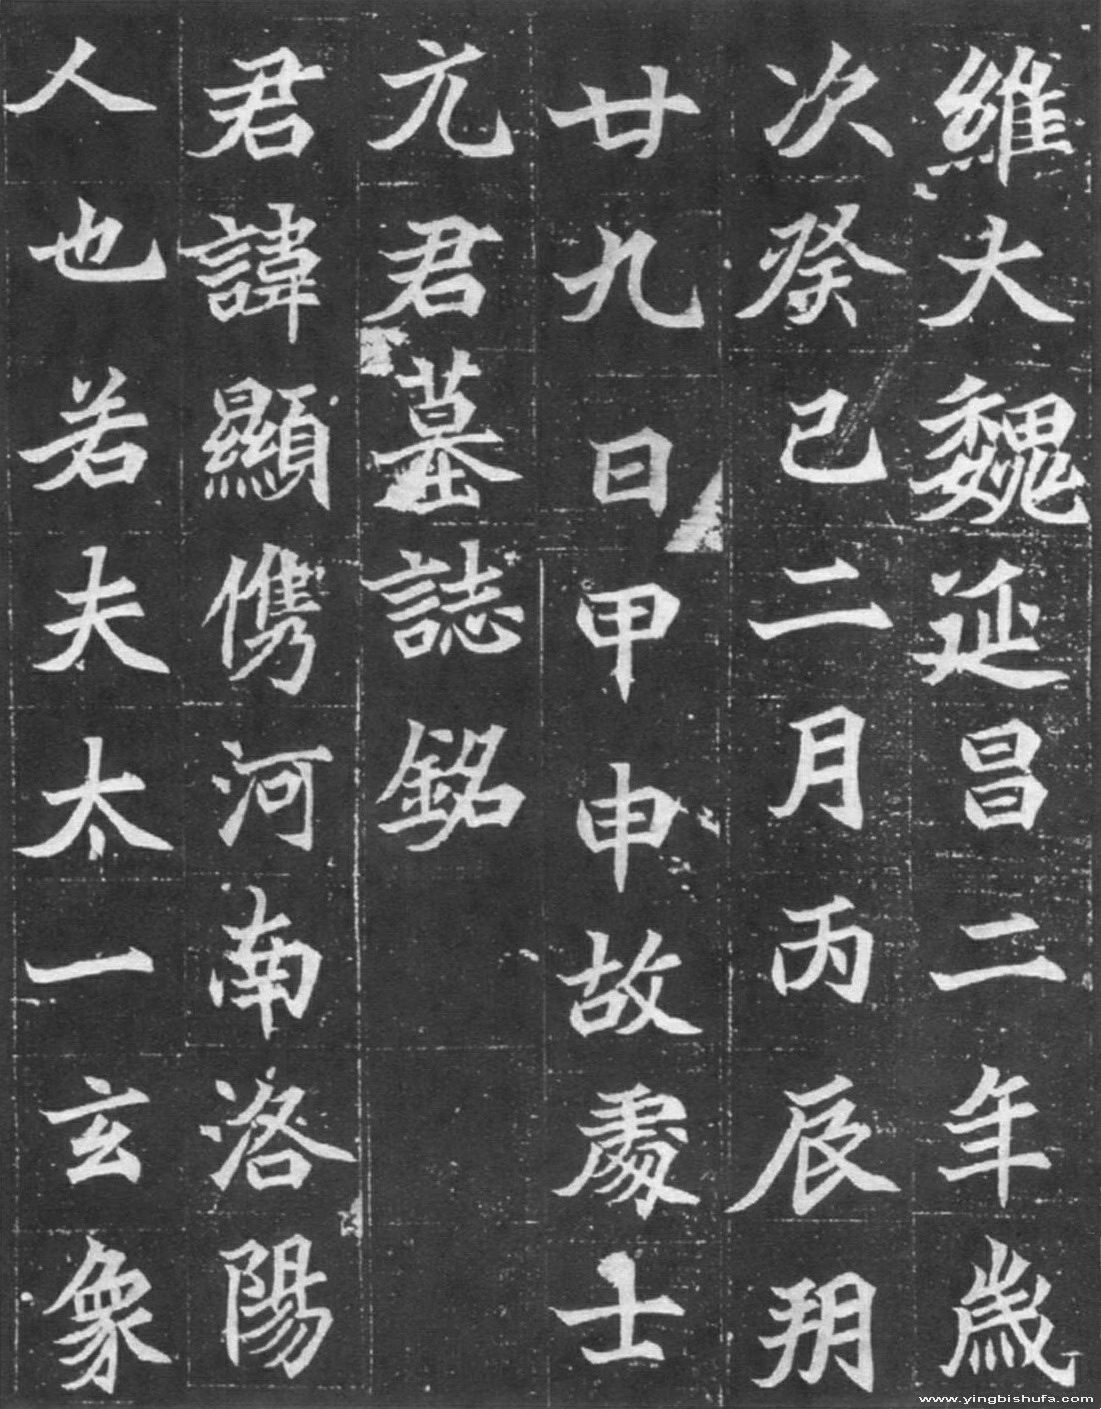 維大魏延昌二年歲
次癸巳二月丙辰朔
廿九日甲申故處士
元君墓誌銘
君諱顯儁河南洛陽
人也若夫太一玄象
www.yingbishufa.com